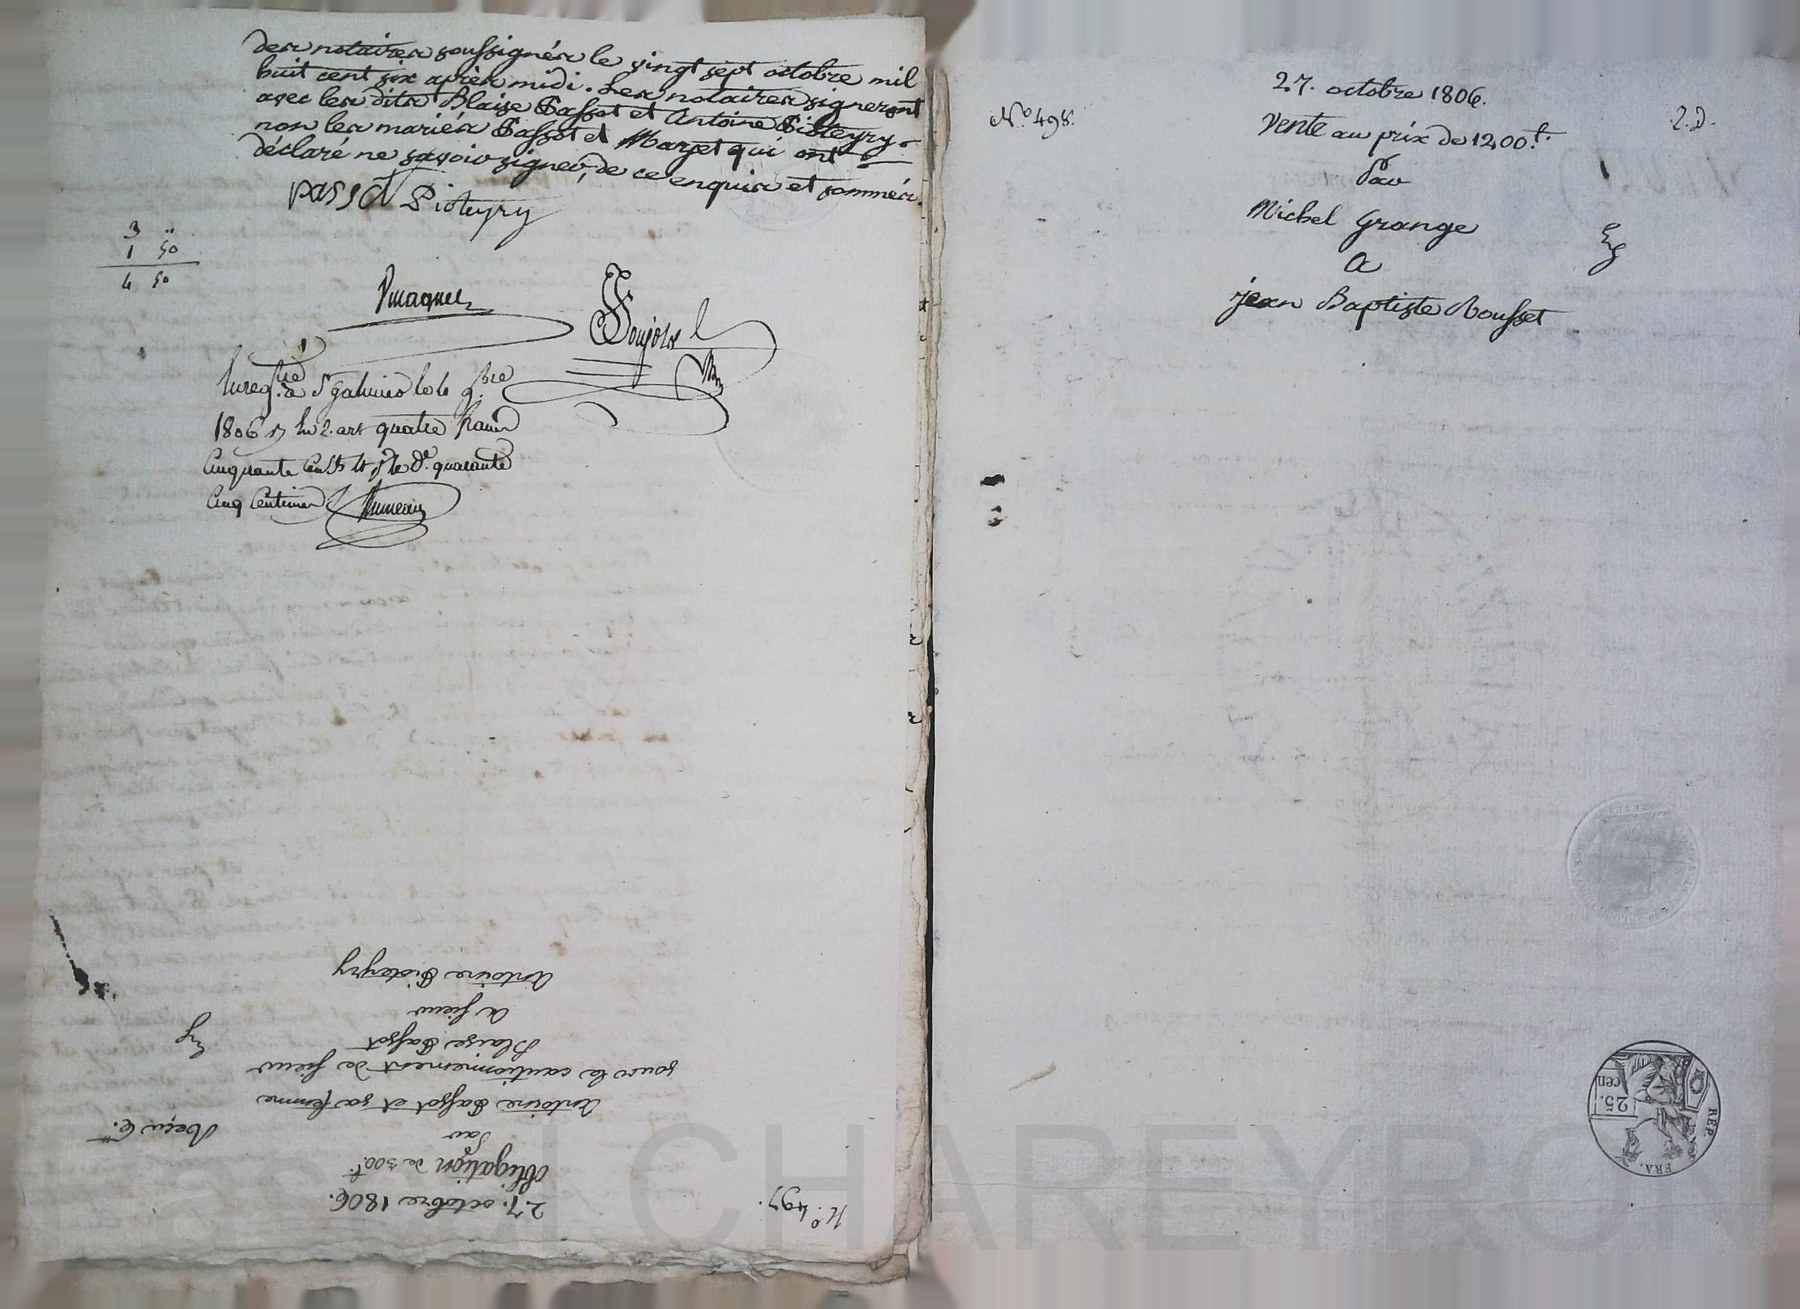 des notaires soussignés le vingt sept octobre mil
huit cent six après midi. Les notaires signeront
avec les dits Blaise Passot et Antoine Pioteyry
non les mariés Passot et Marjet qui ont
déclaré ne savoir signer, de ce enquis et sommés.
passot Pioteyry
3 "
1 50
4 50
à St galmier le
1806 quatre francs
Cinquante quarante
Cinq Centimes
N.º 497.
27. octobre 1806.
Obligation de 300.ᶠ
Par
Antoine Passot et sa femme
Reçu 6.ᶠ
sous le cautionnement de sieur
Blaise Passot
Eng
a sieur
Antoine Pioteyry
N.º 498.
27. octobre 1806.
2. D.
Vente au prix de 1200.ᶠ
Par
Michel Grange
Eng
a
jean Baptiste Rousset
REP.
FRA.
25.
cen
CHAREYRON